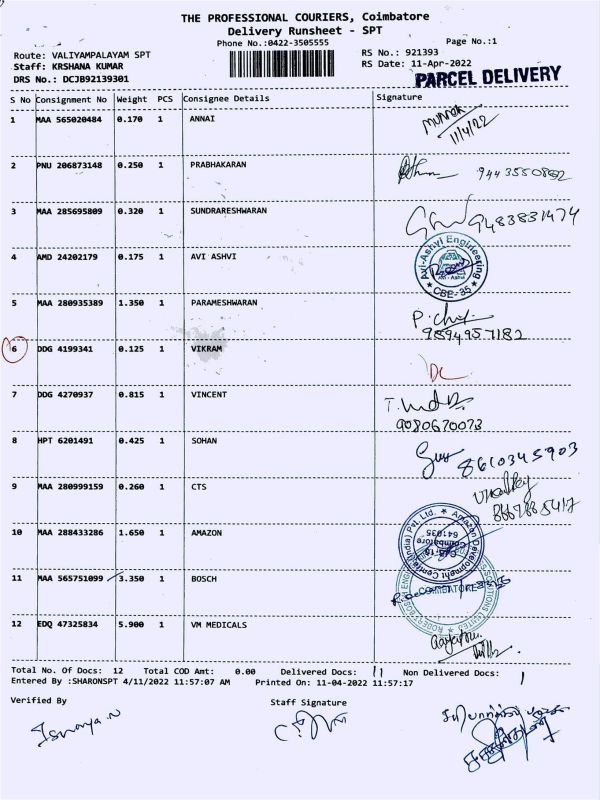 THE PROFESSIONAL COURIERS, Coimbatore
Delivery Runsheet - SPT
Phone No.:0422-3505555
Page No.:1
Route: VALIYAMPALAYAM SPT
RS No.: 921393
Staff: KRSHANA KUMAR
RS Date: 11-Apr-2022
DRS No.: DCJB92139301
PARCEL DELIVERY
S No Consignment No Weight PCS Consignee Details Signature
1 MAA 565020484 0.170 1 ANNAI
11/4/22
2 PNU 206873148 0.250 1 PRABHAKARAN
3 MAA 285695809 0.320 1 SUNDRARESHWARAN 9483831474
4 AMD 24202179 0.175 1 AVI ASHVI
Avi-Ashvi Engineering
Avi - Ashvi
CBE-35
5 MAA 280935389 1.350 1 PARAMESHWARAN
9894957182
6 DDG 4199341 0.125 1 VIKRAM
DC
7 DDG 4270937 0.815 1 VINCENT
9080670073
8 HPT 6201491 0.425 1 SOHAN 8610345903
9 MAA 280999159 0.260 1 CTS
10 MAA 288433286 1.650 1 AMAZON
Amazon Development Centre(India) Pvt. Ltd.
Coimbatore
641035
11 MAA 565751099 3.350 1 BOSCH
COIMBATORE
12 EDQ 47325834 5.900 1 VM MEDICALS
Total No. Of Docs: 12 Total COD Amt: 0.00 Delivered Docs: 11 Non Delivered Docs: 1
Entered By :SHARONSPT 4/11/2022 11:57:07 AM Printed On: 11-04-2022 11:57:17
Verified By Staff Signature
Iswarya.N